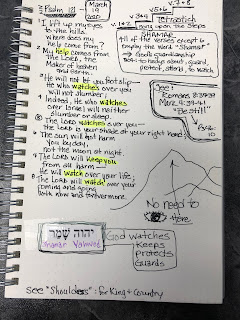 Psalm 121
March
14
v.1+2
v.3+4
v.5+6
v.7+8
Tetrastich
I lift up my eyes
to the hills
where does my
help come from?
2 My help comes from
the Lord, the
Maker of heaven
and earth.
3 He will not let your foot slip
He who watches over you
will not slumber;
4 Indeed, He who watches
over Israel will neither
slumber or sleep.
5 The LORD watches over you—
the LORD is your shade at your right hand;
6 The sun will not harm
you by day,
nor the moon at night.
7 The LORD will keep you
from all harm—
He will watch over your life;
8 The LORD will watch over your
coming and going
both now and forevermore.
SHAMAR
All of the verses except 2
employ the word "Shamar"
God's guardianship
to hedge about, guard,
protect, attend, to watch
See
Romans 8:37-39
Mark 4:39-41
"Be still"
No need to
be
there.
יהוה שמר
God watches
Keeps
protects
Guards
See "Shoulders": for King + Country